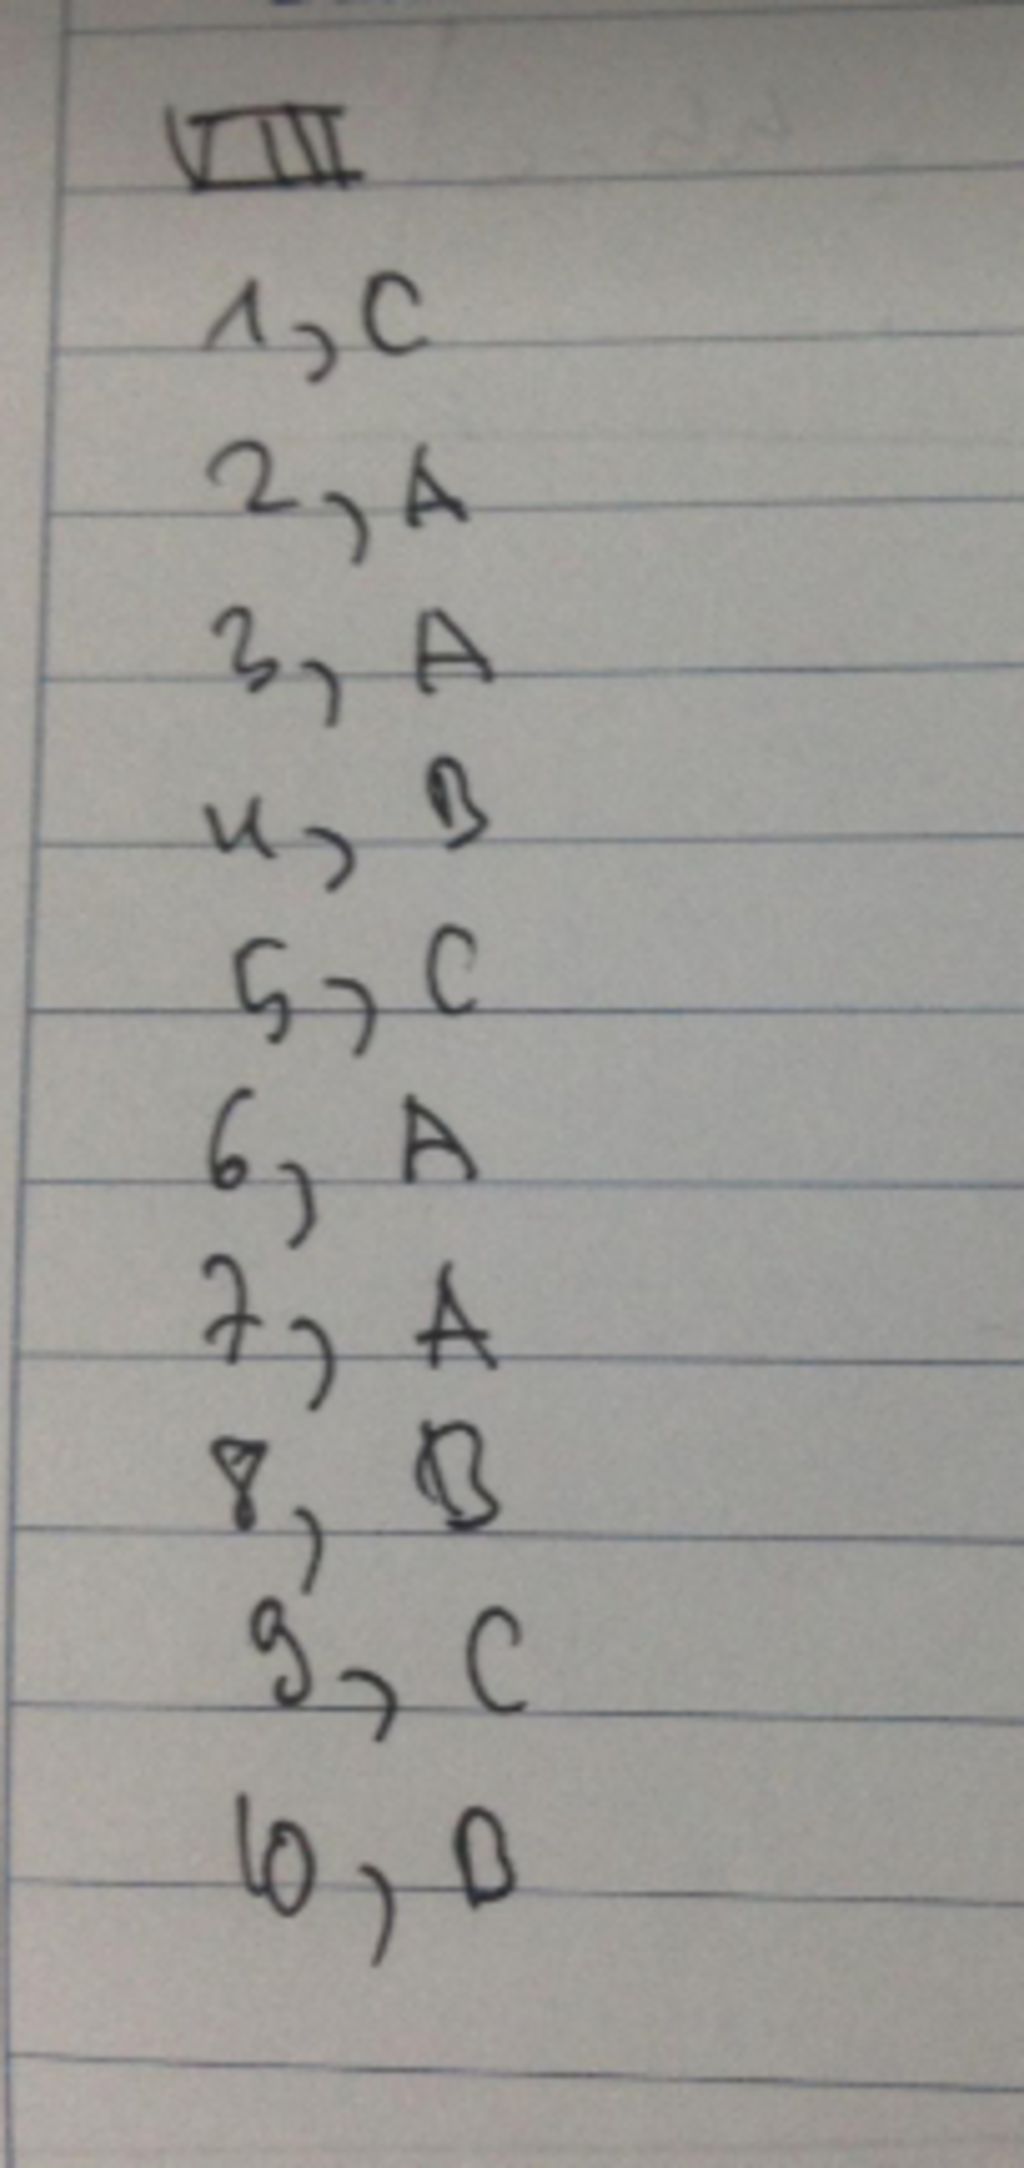 VIII
1, C
2, A
3, A
4, B
5, C
6, A
7, A
8, B
9, C
10, B